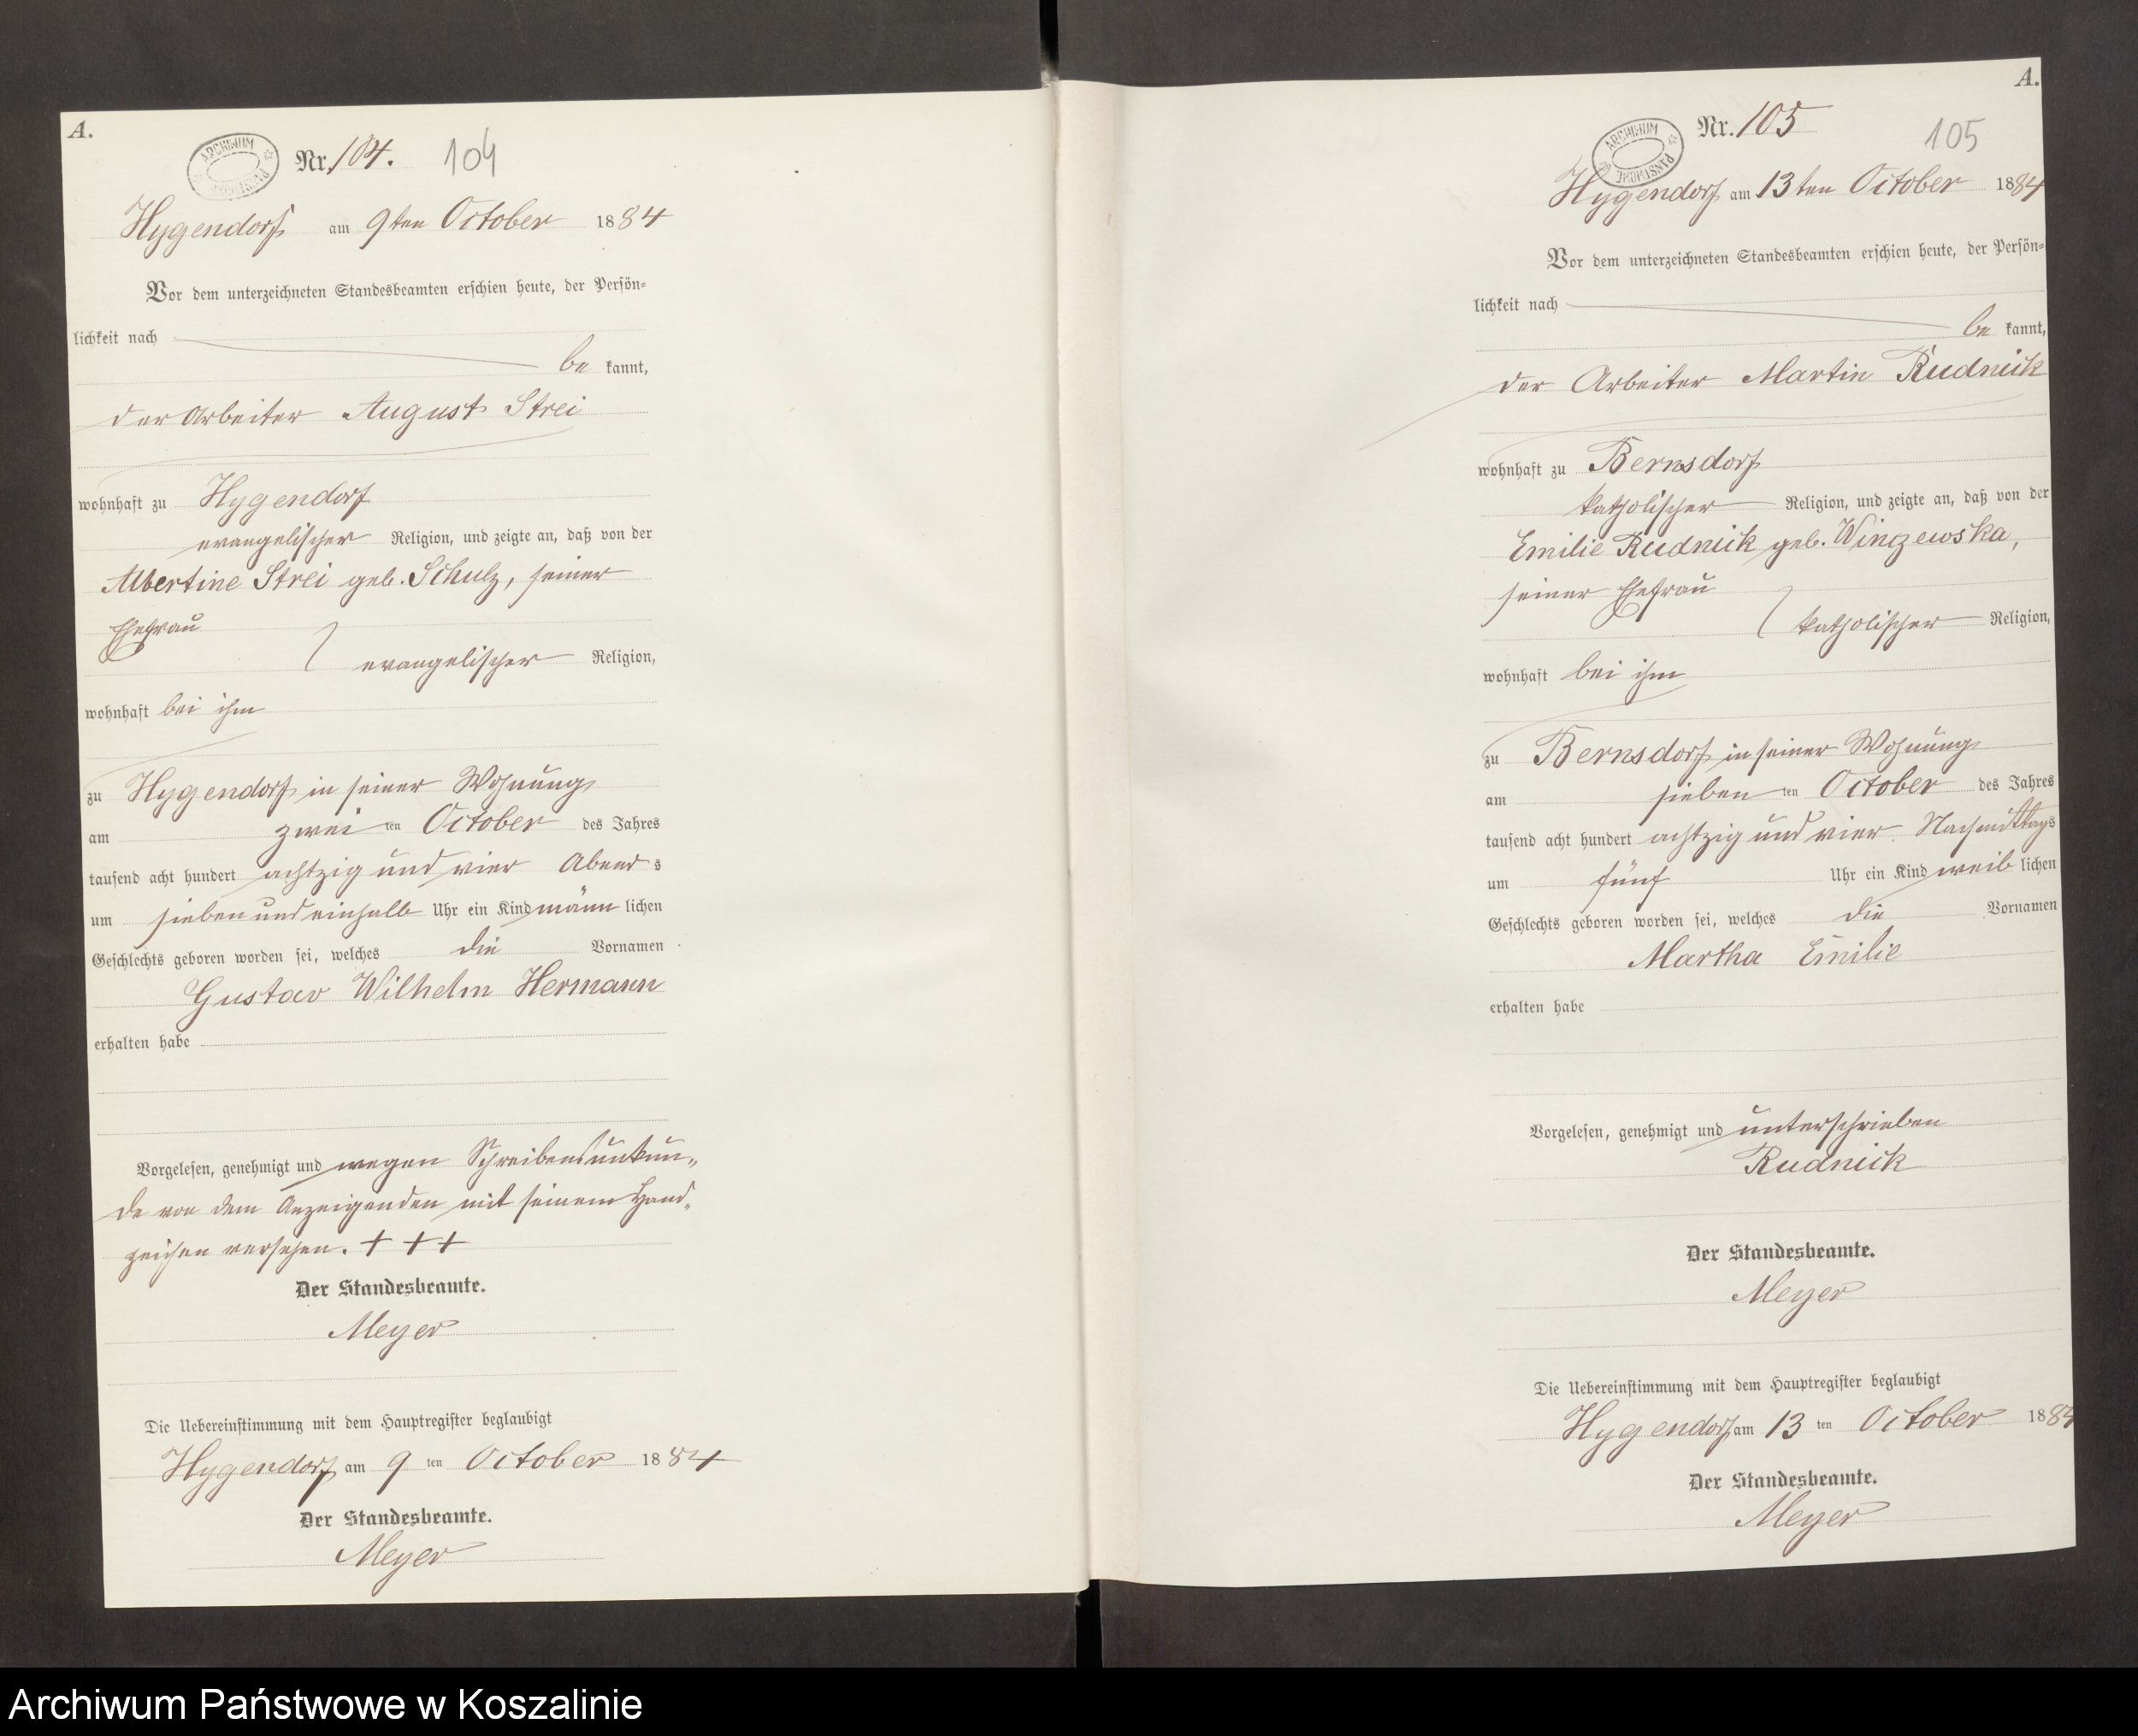 A.
ARCHIWUM PAŃSTWOWE
Nr. 104. 104
Hygendorf am 9ten October 1884
Vor dem unterzeichneten Standesbeamten erschien heute, der Persön-
lichkeit nach
be kannt,
der Arbeiter August Strei
wohnhaft zu Hygendorf
evangelischer Religion, und zeigte an, daß von der
Albertine Strei geb. Schulz, seiner
Ehefrau
evangelischer Religion,
wohnhaft bei ihm
zu Hygendorf in seiner Wohnung
am zwei ten October des Jahres
tausend acht hundert achtzig und vier Abend s
um sieben und einhalb Uhr ein Kind männ lichen
Geschlechts geboren worden sei, welches die Vornamen
Gustav Wilhelm Hermann
erhalten habe
Vorgelesen, genehmigt und wegen Schreibensunkun„
de von dem Anzeigenden mit seinem Hand„
zeichen versehen. + + +
Der Standesbeamte.
Meyer
Die Uebereinstimmung mit dem Hauptregister beglaubigt
Hygendorf am 9 ten October 1884
Der Standesbeamte.
Meyer
A.
ARCHIWUM PAŃSTWOWE
Nr. 105 105
Hygendorf am 13ten October 1884
Vor dem unterzeichneten Standesbeamten erschien heute, der Persön-
lichkeit nach
be kannt,
der Arbeiter Martin Rudnick
wohnhaft zu Bernsdorf
katholischer Religion, und zeigte an, daß von der
Emilie Rudnick geb. Winczewska,
seiner Ehefrau
katholischer Religion,
wohnhaft bei ihm
zu Bernsdorf in seiner Wohnung
am sieben ten October des Jahres
tausend acht hundert achtzig und vier Nachmittags
um fünf Uhr ein Kind weib lichen
Geschlechts geboren worden sei, welches die Vornamen
Martha Emilie
erhalten habe
Vorgelesen, genehmigt und unterschrieben
Rudnick
Der Standesbeamte.
Meyer
Die Uebereinstimmung mit dem Hauptregister beglaubigt
Hygendorf am 13 ten October 1884
Der Standesbeamte.
Meyer
Archiwum Państwowe w Koszalinie